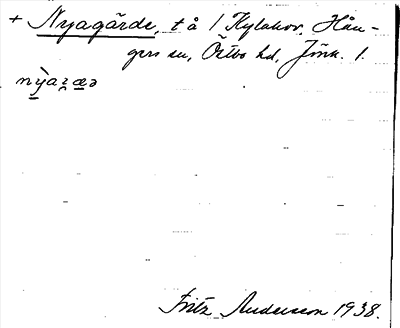 + Nyagärde, t å 1 Kylakov, Hån-
gers sn, Östbo hd, Jönk. l.
Fritz Andersson 1938.